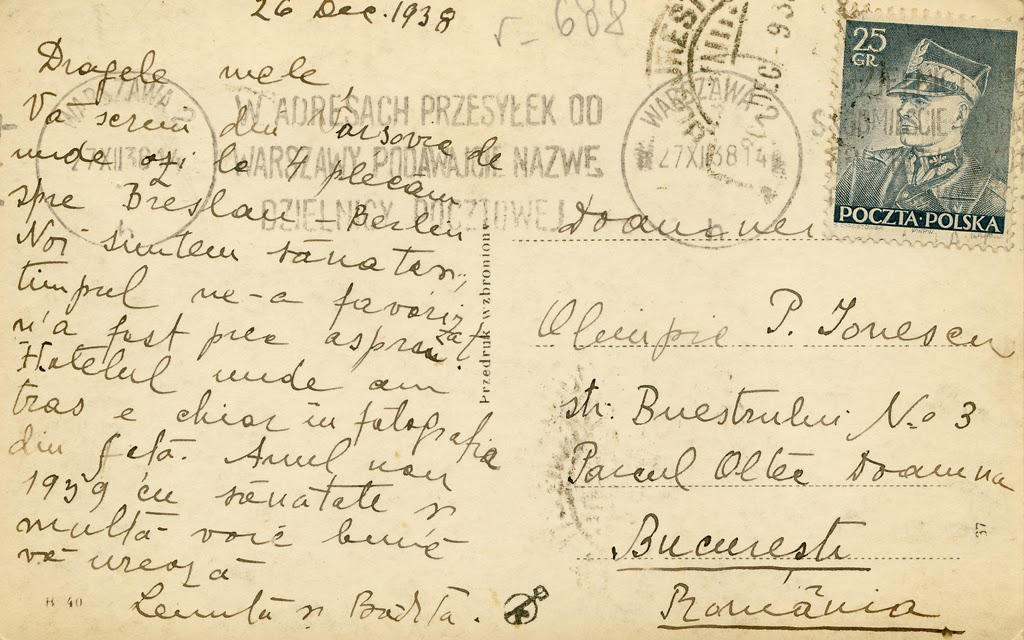 26 Dec. 1938
Dragele mele
Vă scriu din Varsovia
unde azi la 4 plecăm de
spre Breslau - Berlin
Noi suntem sănatoși,
timpul ne-a favorizat
n'a fost prea aspru.
Hotelul unde am
tras e chiar în fotografia
din față. Anul nou
1939 cu sănatate și
multă voie bună
vă urează
Lenuță și
r- 688
25
GR
POCZTA·POLSKA
WARSZAWA 2
27XII3814
W ADRESACH PRZESYŁEK DO
WARSZAWY PODAWAJCIE NAZWĘ
DZIELNICY POCZTOWEJ
WARSZAWA 2
27XII3814
h
DEC 938
Doamnei
Olimpie P. Ionescu
str. Buestrului No 3
Parcul Oltec Doamna
București
România
Przedruk wzbroniony
37
B 40